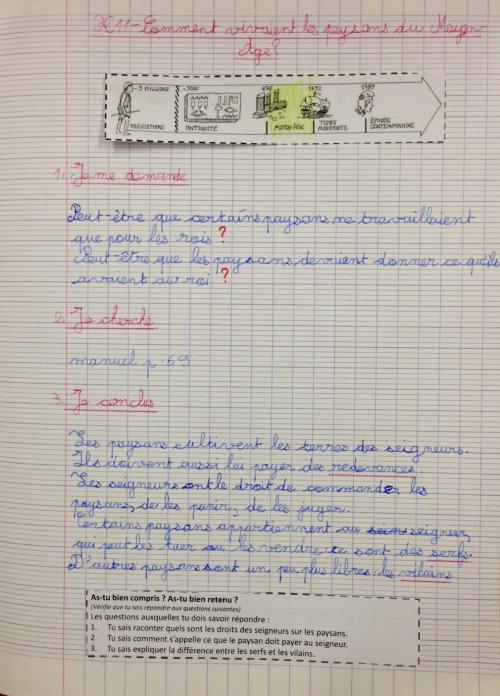 K11-Comment vivaient les paysans du Moyen-
Age?
-3 MILLIONS
-3000
476
1492
1789
PRÉHISTOIRE
ANTIQUITÉ
MOYEN-ÂGE
TEMPS MODERNES
ÉPOQUE CONTEMPORAINE
1. Je me demande
Peut-être que certains paysans ne travaillaient
que pour les rois ?
Peut-être que les paysans devrient donner ce qu'ils
avaient au roi ?
2. Je cherche
manuel p. 69
3. Je conclus
Les paysans cultivent les terres des seigneurs.
Ils doivent aussi lui payer des redevances.
Les seigneurs ont le droit de commander les
paysans, de les punir, de les juger.
Certains paysans appartiennent au seigneur,
qui peut les tuer ou les vendre, ce sont des serfs.
D'autres paysans sont un peu plus libres: les vilains
As-tu bien compris ? As-tu bien retenu ?
(Vérifie que tu sais répondre aux questions suivantes)
Les questions auxquelles tu dois savoir répondre :
1. Tu sais raconter quels sont les droits des seigneurs sur les paysans.
2. Tu sais comment s'appelle ce que le paysan doit payer au seigneur.
3. Tu sais expliquer la différence entre les serfs et les vilains.